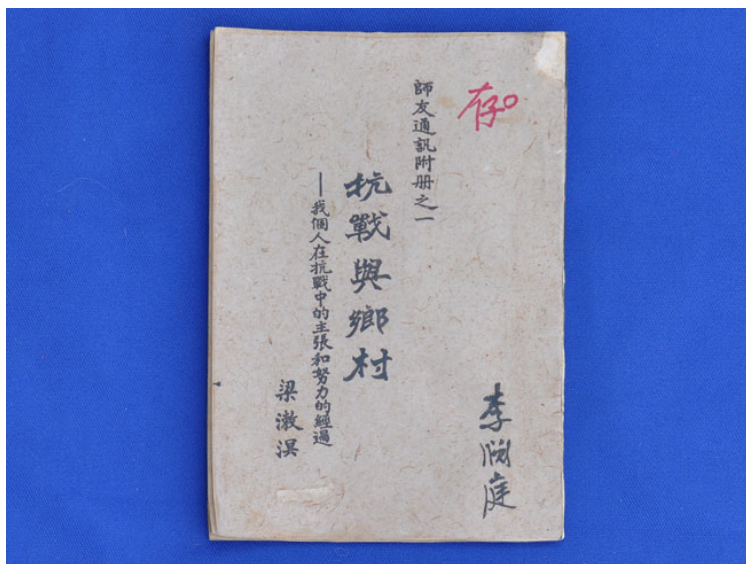 存
師友通訊附册之一
抗戰與鄉村
—我個人在抗戰中的主張和努力的經過
梁漱溟
李淵庭